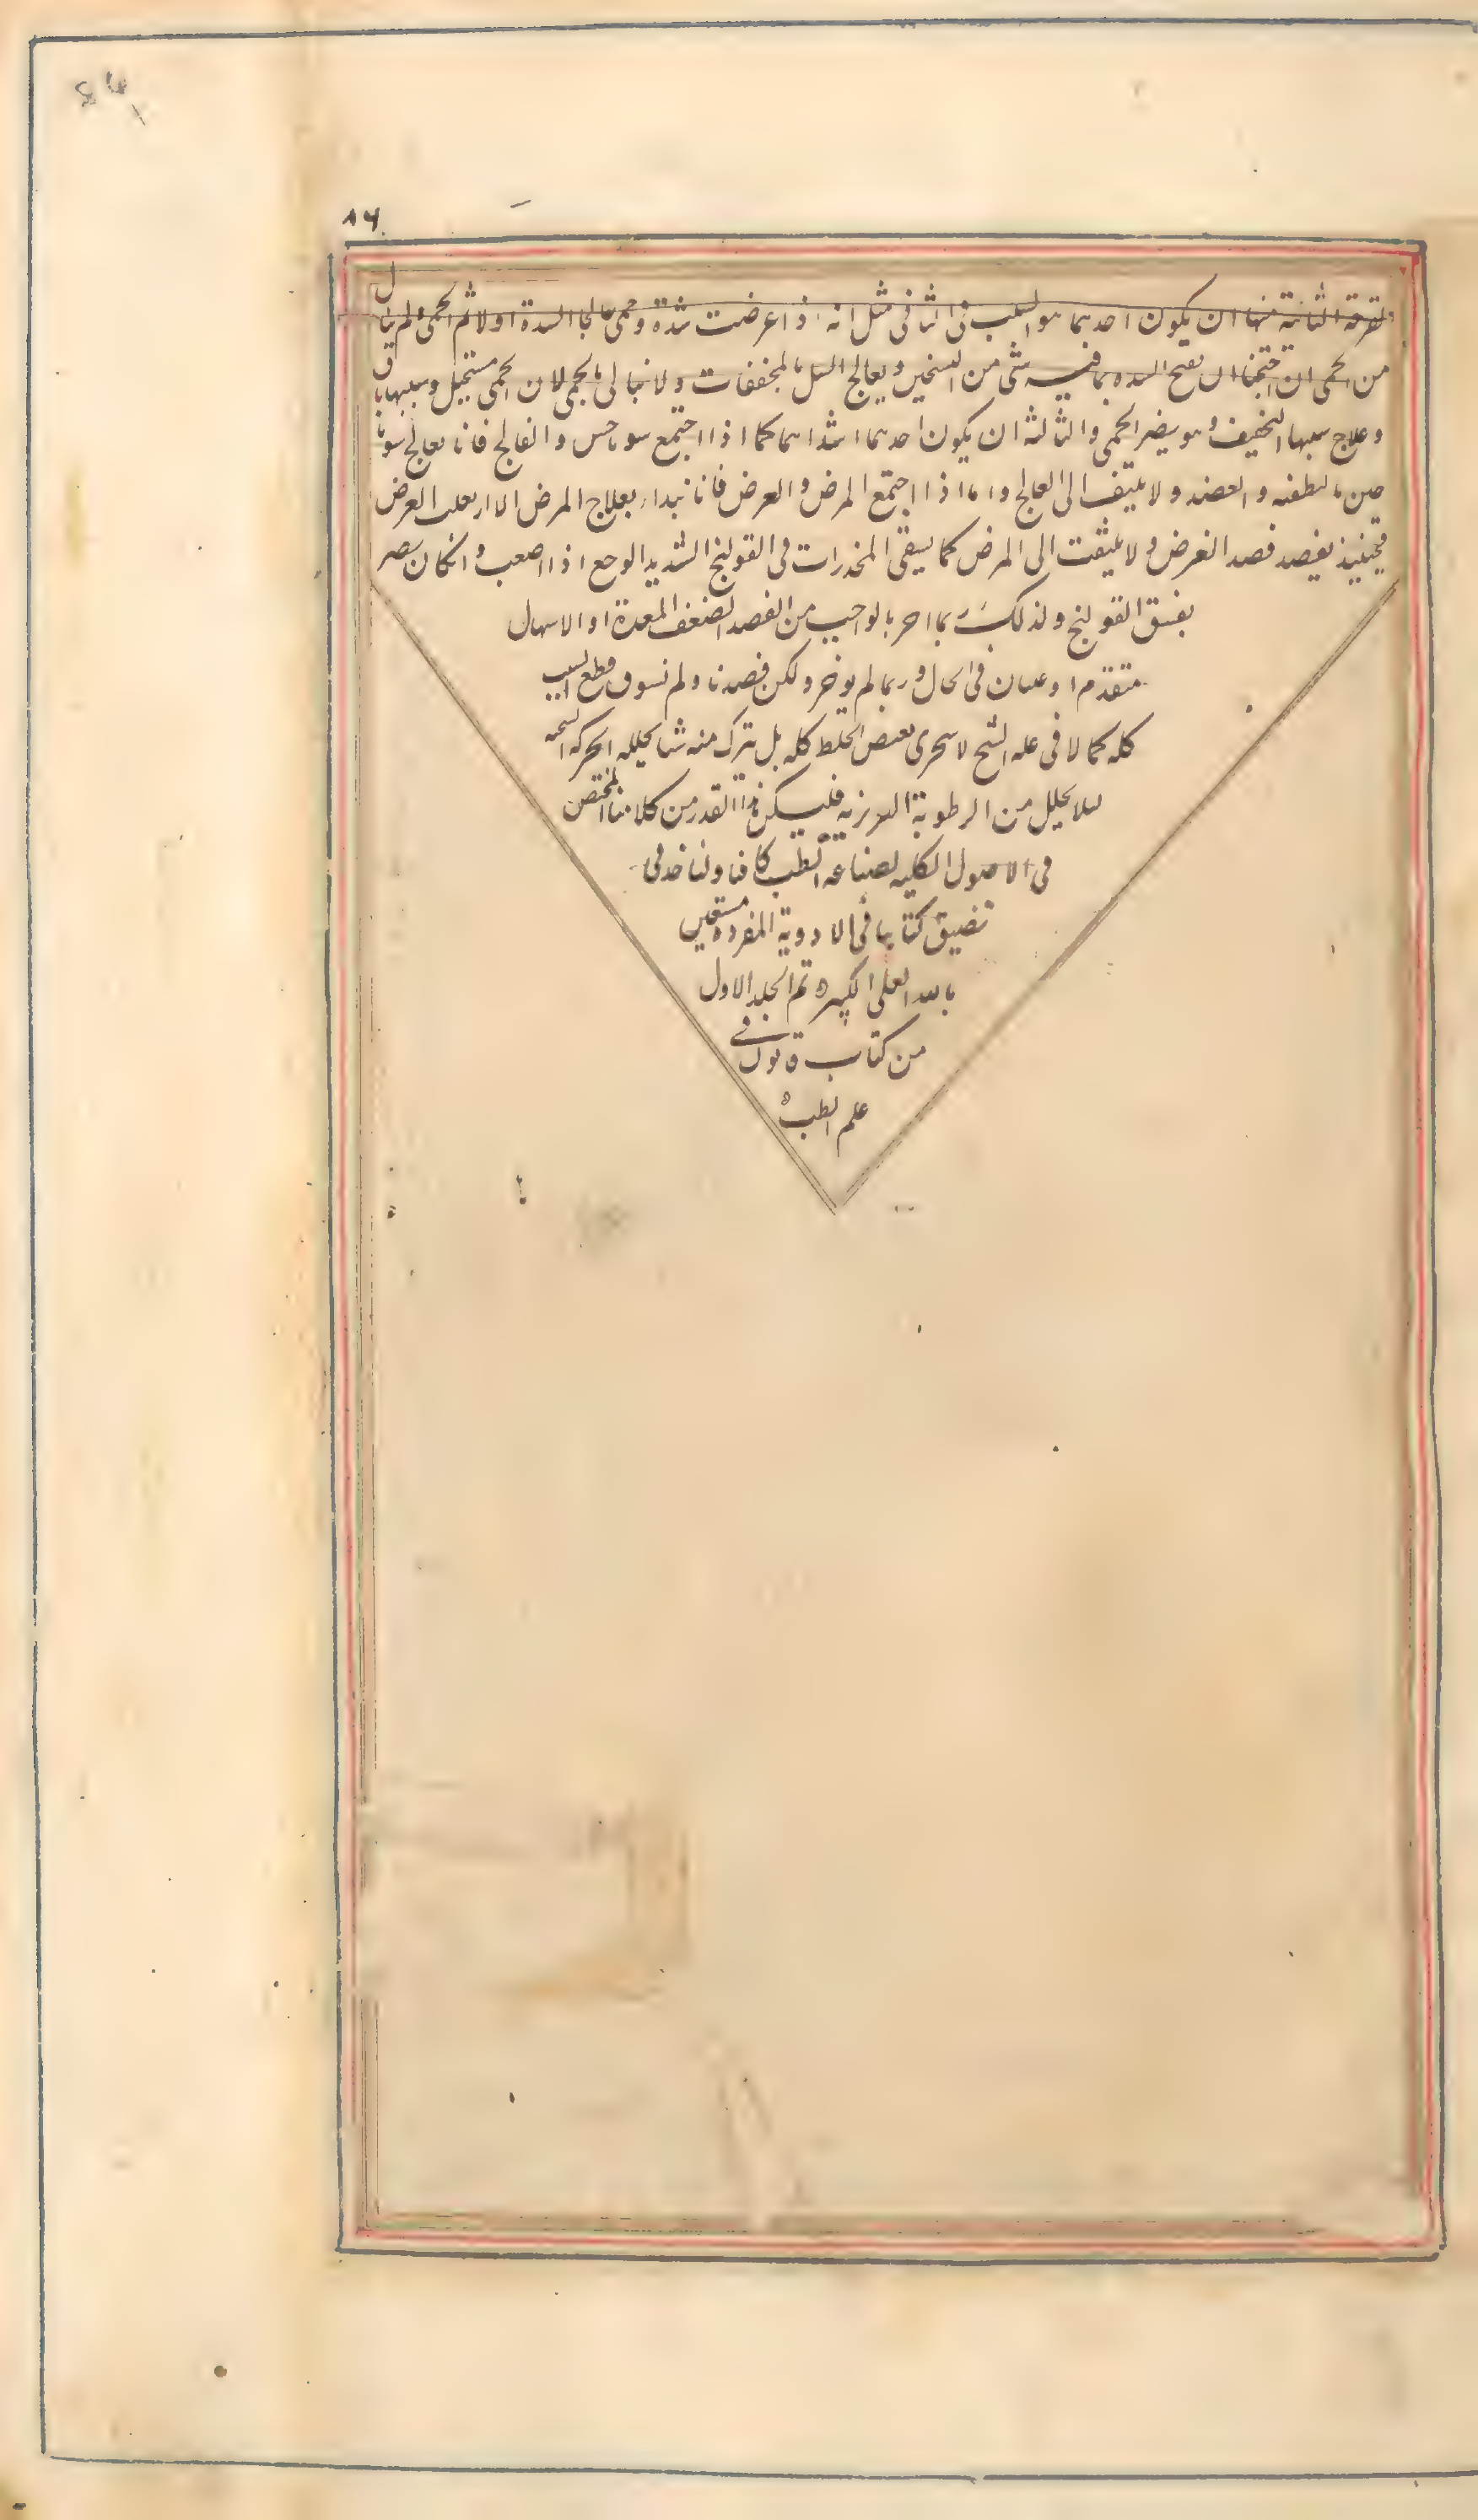 ١٨٦
القرحة الثانية منها ان يكون احدهما هو السبب فى الثانى مثل انه اذا عرضت سدة وحمى عالجنا السدة اولا ثم الحمى ولم نبال
من الحمى ان احتجنا الى نفتح السده بما فيه شى من التسخين ويعالج السل بالمجففات ولا نبالى بالحمى لان الحمى مستحيل وسببها باق
وعلاج سببها التجفيف وهو يضر الحمى والثالثه ان يكون احدهما اشدهما كما اذا اجتمع سوناخس والفالج فانا نعالج سونا
خس بالتطفئه والفصد ولا نلتفت الى الفالج واما اذا اجتمع المرض والعرض فانا نبداء بعلاج المرض الا ان يغلب العرض
فحينئذ نقصد قصد العرض ولا نلتفت الى المرض كما نسقى المخدرات فى القولنج الشديد الوجع اذا صعب وان كان يضر
بنفس القولنج وكذلك ربما اخر بالواجب من الفصد لضعف المعدة او الاسهال
متقدم او غثيان فى الحال وربما لم يوخر ولكن فصدنا ولم نستوف قطع السبب
كله كما لا فى عله التشنج لا نتحرى نفض الخلط كله بل نترك منه شيا يحلله الحركه التشنجيه
لىلا يحلل من الرطوبة الغريزيه فليكن هذا القدر من كلامنا المختصر
فى الاصول الكليه لصناعه الطب كافيا ولناخذ فى
تصنيف كتابنا فى الادوية المفرده مستعين
بالله العلى الكبير ه تم الجلد الاول
من كتاب قانون فى
علم الطب ه